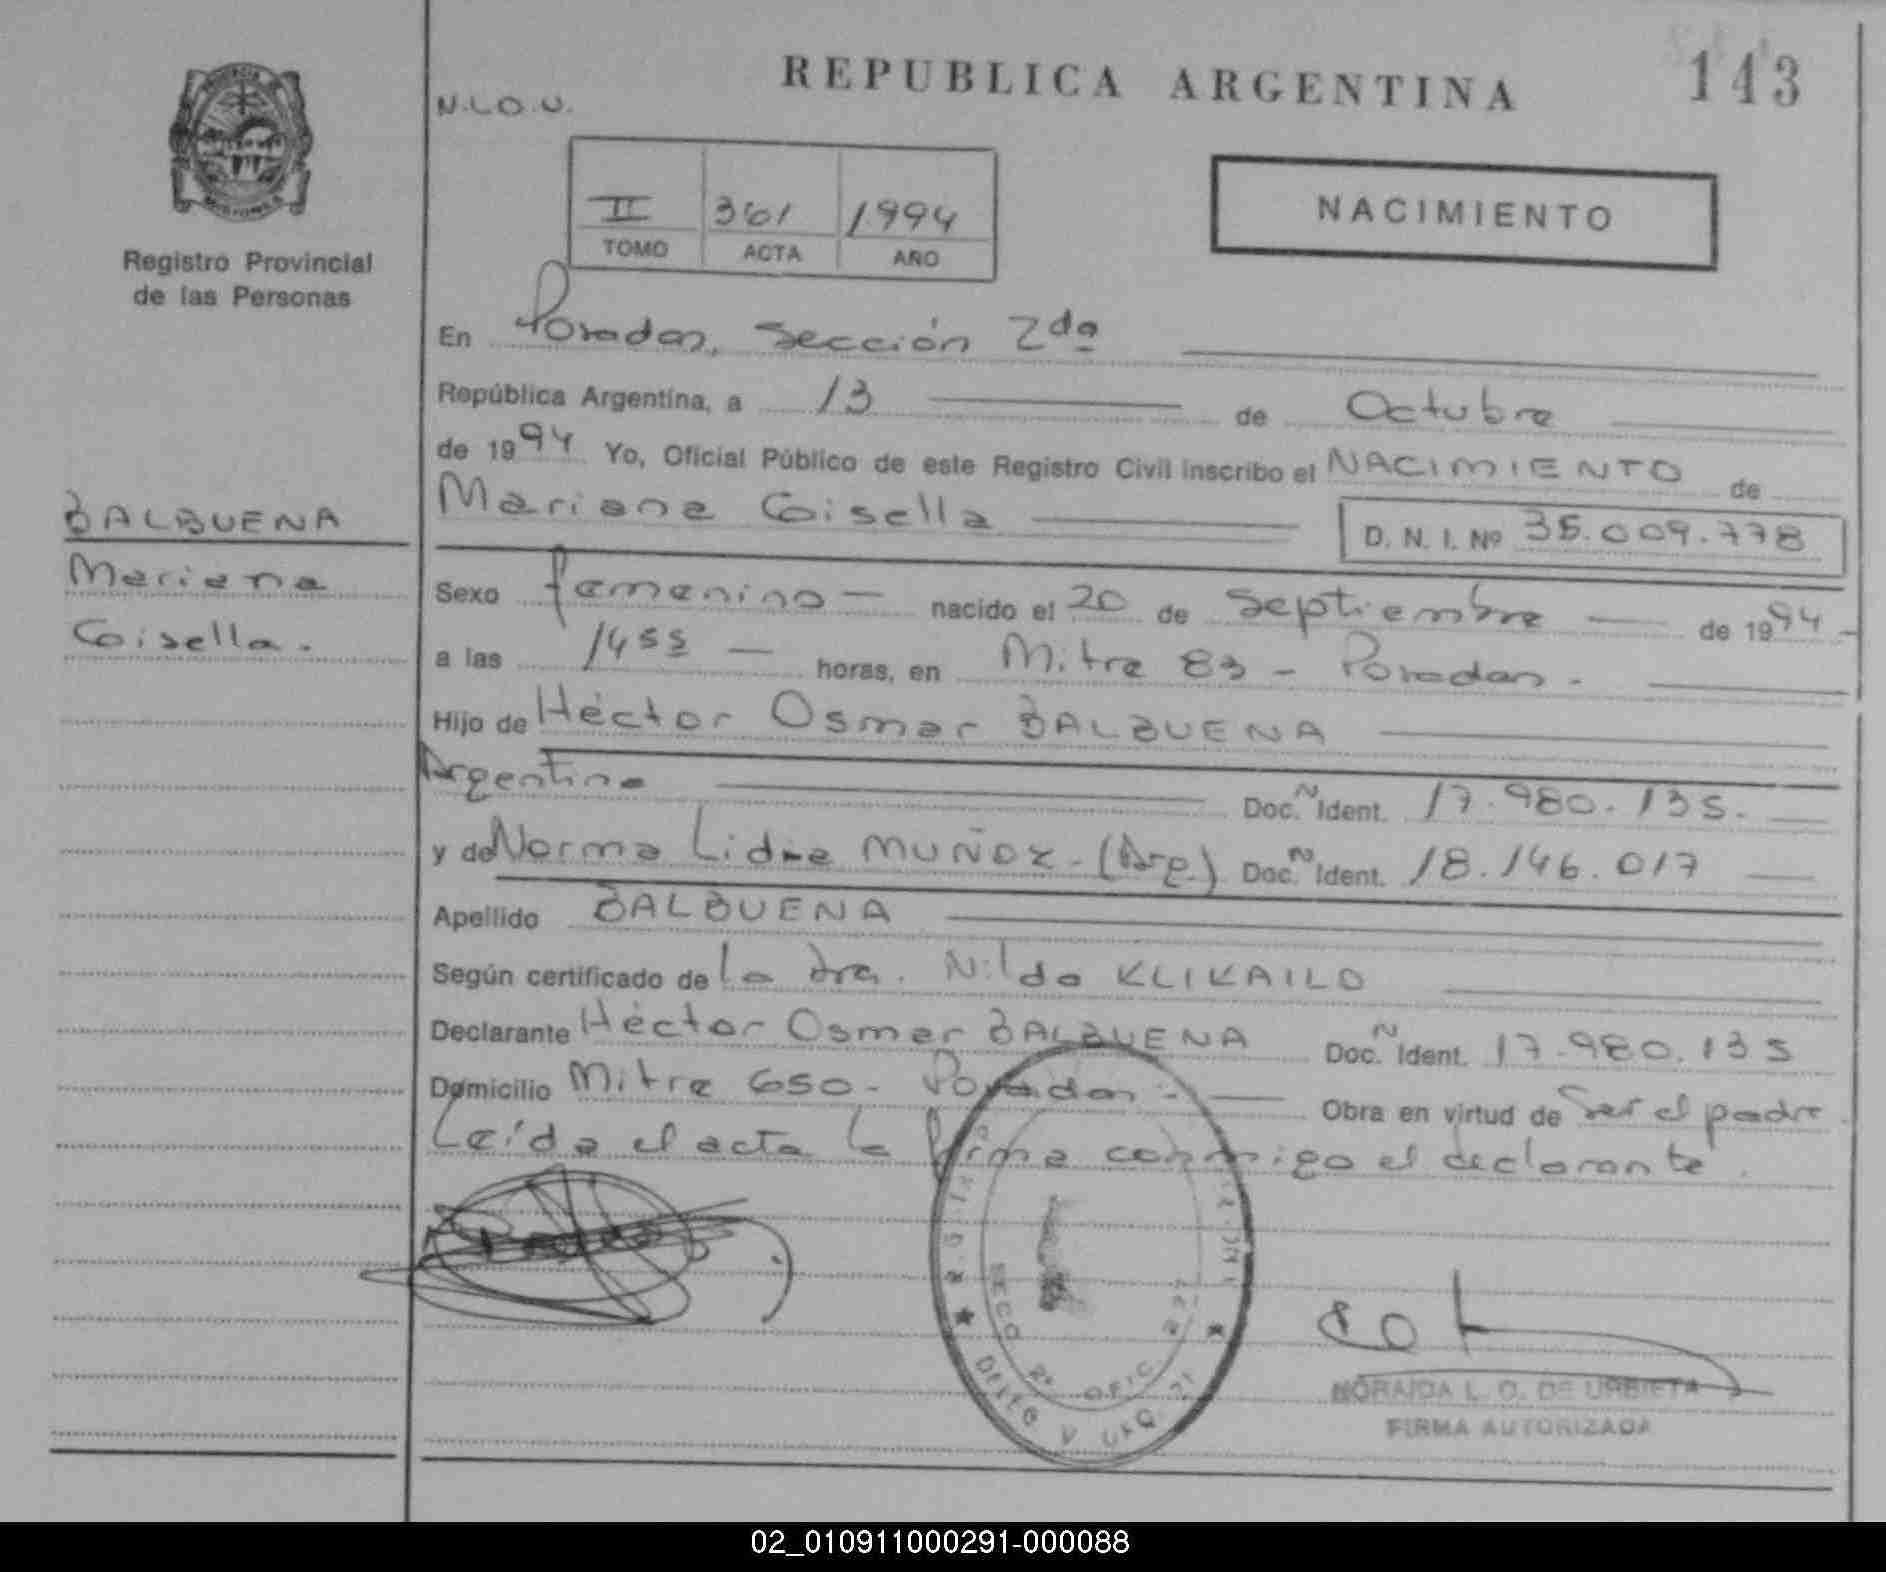 REPUBLICA ARGENTINA
143
N.L.O.U.
II 361 1994
TOMO ACTA AÑO
NACIMIENTO
Registro Provincial
de las Personas
En Posadas, Sección 2da
República Argentina, a 13 de Octubre
de 1994 Yo, Oficial Público de este Registro Civil inscribo el NACIMIENTO de
Mariana Gisella D. N. I. Nº 35.009.778
BALBUENA
Mariana
Gisella.
Sexo femenino nacido el 20 de Septiembre de 1994
a las 14 55 horas, en Mitre 83 - Posadas.
Hijo de Héctor Osmar BALBUENA
Argentino Doc. N Ident. 17.980.135.
y de Norma Lidia MUÑOZ - (Arg.) Doc. N Ident. 18.146.017
Apellido BALBUENA
Según certificado de la dra. Nilda KLIKAILO
Declarante Héctor Osmar BALBUENA Doc. N Ident. 17.980.135
Domicilio Mitre 650 - Posadas. - Obra en virtud de Ser el padre.
Leída el acta la firma conmigo el declarante.
SECC 2ª OFIC.
NORAIDA L. O. DE URBIETA
FIRMA AUTORIZADA
02_010911000291-000088